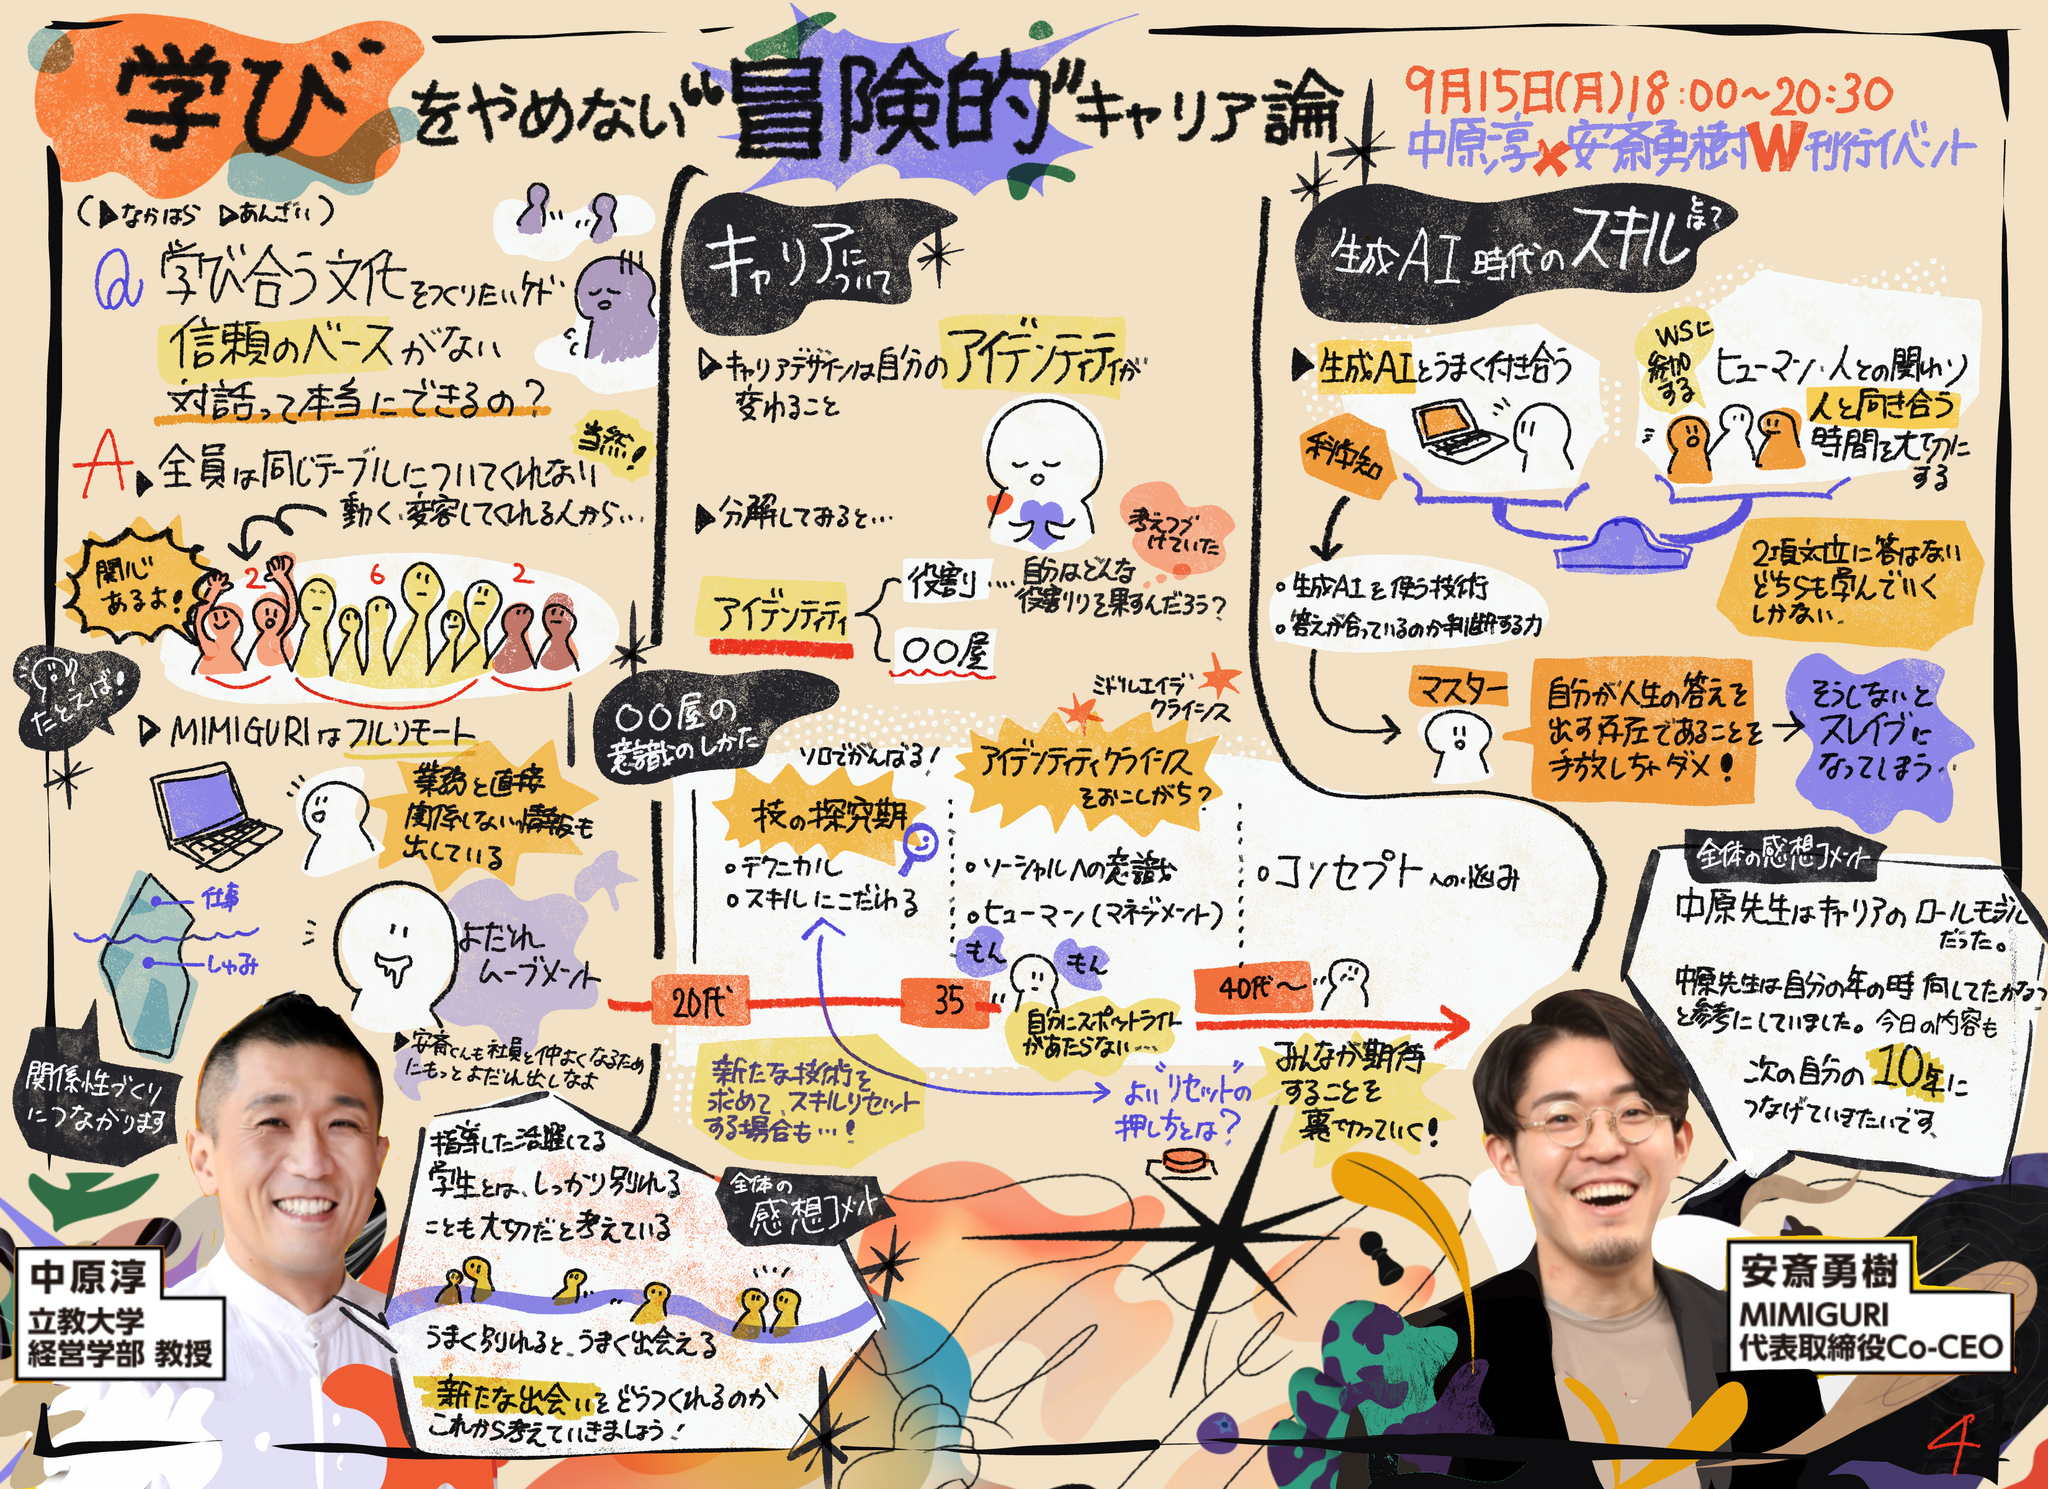 学びをやめない“冒険的”キャリア論
9月15日(月)18:00〜20:30
中原淳×安斎勇樹W刊行イベント
(▶なかはら ▷あんざい)
Q 学び合う文化をつくりたいケド
信頼のベースがない
対話って本当にできるの?
A
当然!
▶全員は同じテーブルについてくれない
動く、変容してくれる人から…
関心あるよ!
2 6 2
たとえば!
▷MIMIGURIはフルリモート
業務と直接
関係しない情報も
出している
仕事
しゅみ
関係性づくり
につながります
よだれ
ムーブメント
▶安斎くんも社員と仲よくなるため
にもっとよだれ出しなよ
キャリアについて
▷キャリアデザインは自分のアイデンティティが
変わること
▶分解してみると…
アイデンティティ
役割
自分はどんな
役割りを果すんだろう?
考えつづ
けていた
〇〇屋
〇〇屋の
意識のしかた
ソロでがんばる!
技の探究期
・テクニカル
・スキルにこだわる
ミドルエイデ
クライシス
アイデンティティクライシス
をおこしがち?
・ソーシャルへの意識
・ヒューマン(マネジメント)
もん
もん
・コンセプトへの悩み
20代
35
40代〜
自分にスポットライト
があたらない…
新たな技術を
求めて、スキルリセット
する場合も…!
よい“リセット”の
押し方とは?
みんなが期待
することを
裏切っていく!
生成AI時代のスキルとは?
▶生成AIとうまく付き合う
WSに
参加
する
ヒューマン・人との関わり
人と向き合う
時間を大切に
する
科学知
・生成AIを使う技術
・答えが合っているのか判断する力
2項対立に答はない
どちらも学んでいく
しかない
マスター
自分が人生の答えを
出す存在であることを
手放しちゃダメ!
そうしないと
スレイブに
なってしまう…
全体の感想コメント
中原先生はキャリアのロールモデル
だった。
中原先生は自分の年の時何してたかなっ
と参考にしていました。今日の内容も
次の自分の10年に
つなげていきたいです。
全体の
感想コメント
指導した活躍してる
学生とは、しっかり別れる
ことも大切だと考えている
うまく別れると、うまく出会える
新たな出会いをどうつくれるのか
これから考えていきましょう!
中原淳
立教大学
経営学部 教授
安斎勇樹
MIMIGURI
代表取締役Co-CEO
4